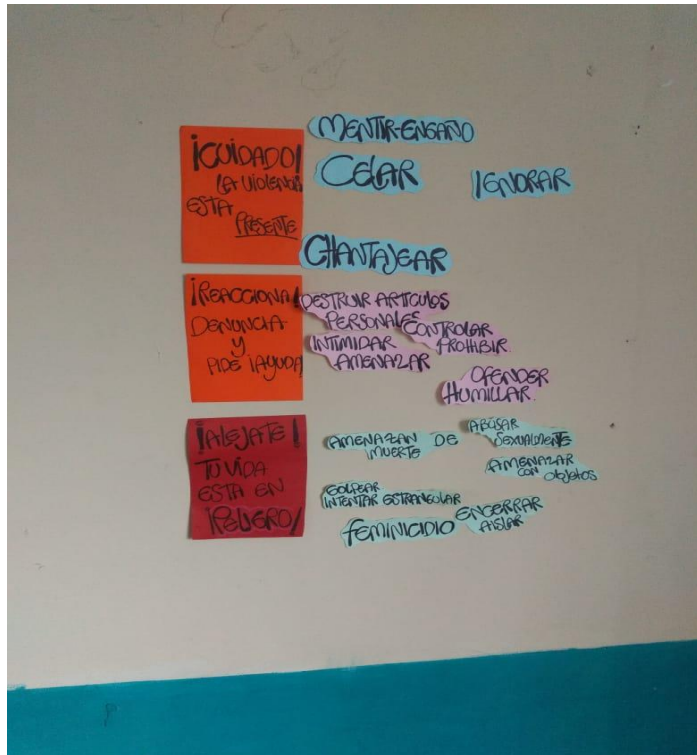 ¡CUIDADO!
LA VIOLENCIA
ESTA
PRESENTE
MENTIR-ENGAÑO
CELAR
IGNORAR
CHANTAJEAR
¡REACCIONA!
DENUNCIA
Y
PIDE ¡AYUDA!
DESTRUIR ARTICULOS
PERSONALES
CONTROLAR
PROHIBIR
INTIMIDAR
AMENAZAR
OFENDER
HUMILLAR
¡ALEJATE!
TU VIDA
ESTA EN
¡PELIGRO!
AMENAZAN DE
MUERTE
ABUSAR
SEXUALMENTE
AMENAZAR
CON objetos
GOLPEAR
INTENTAR ESTRANGULAR
ENCERRAR
AISLAR
FEMINICIDIO